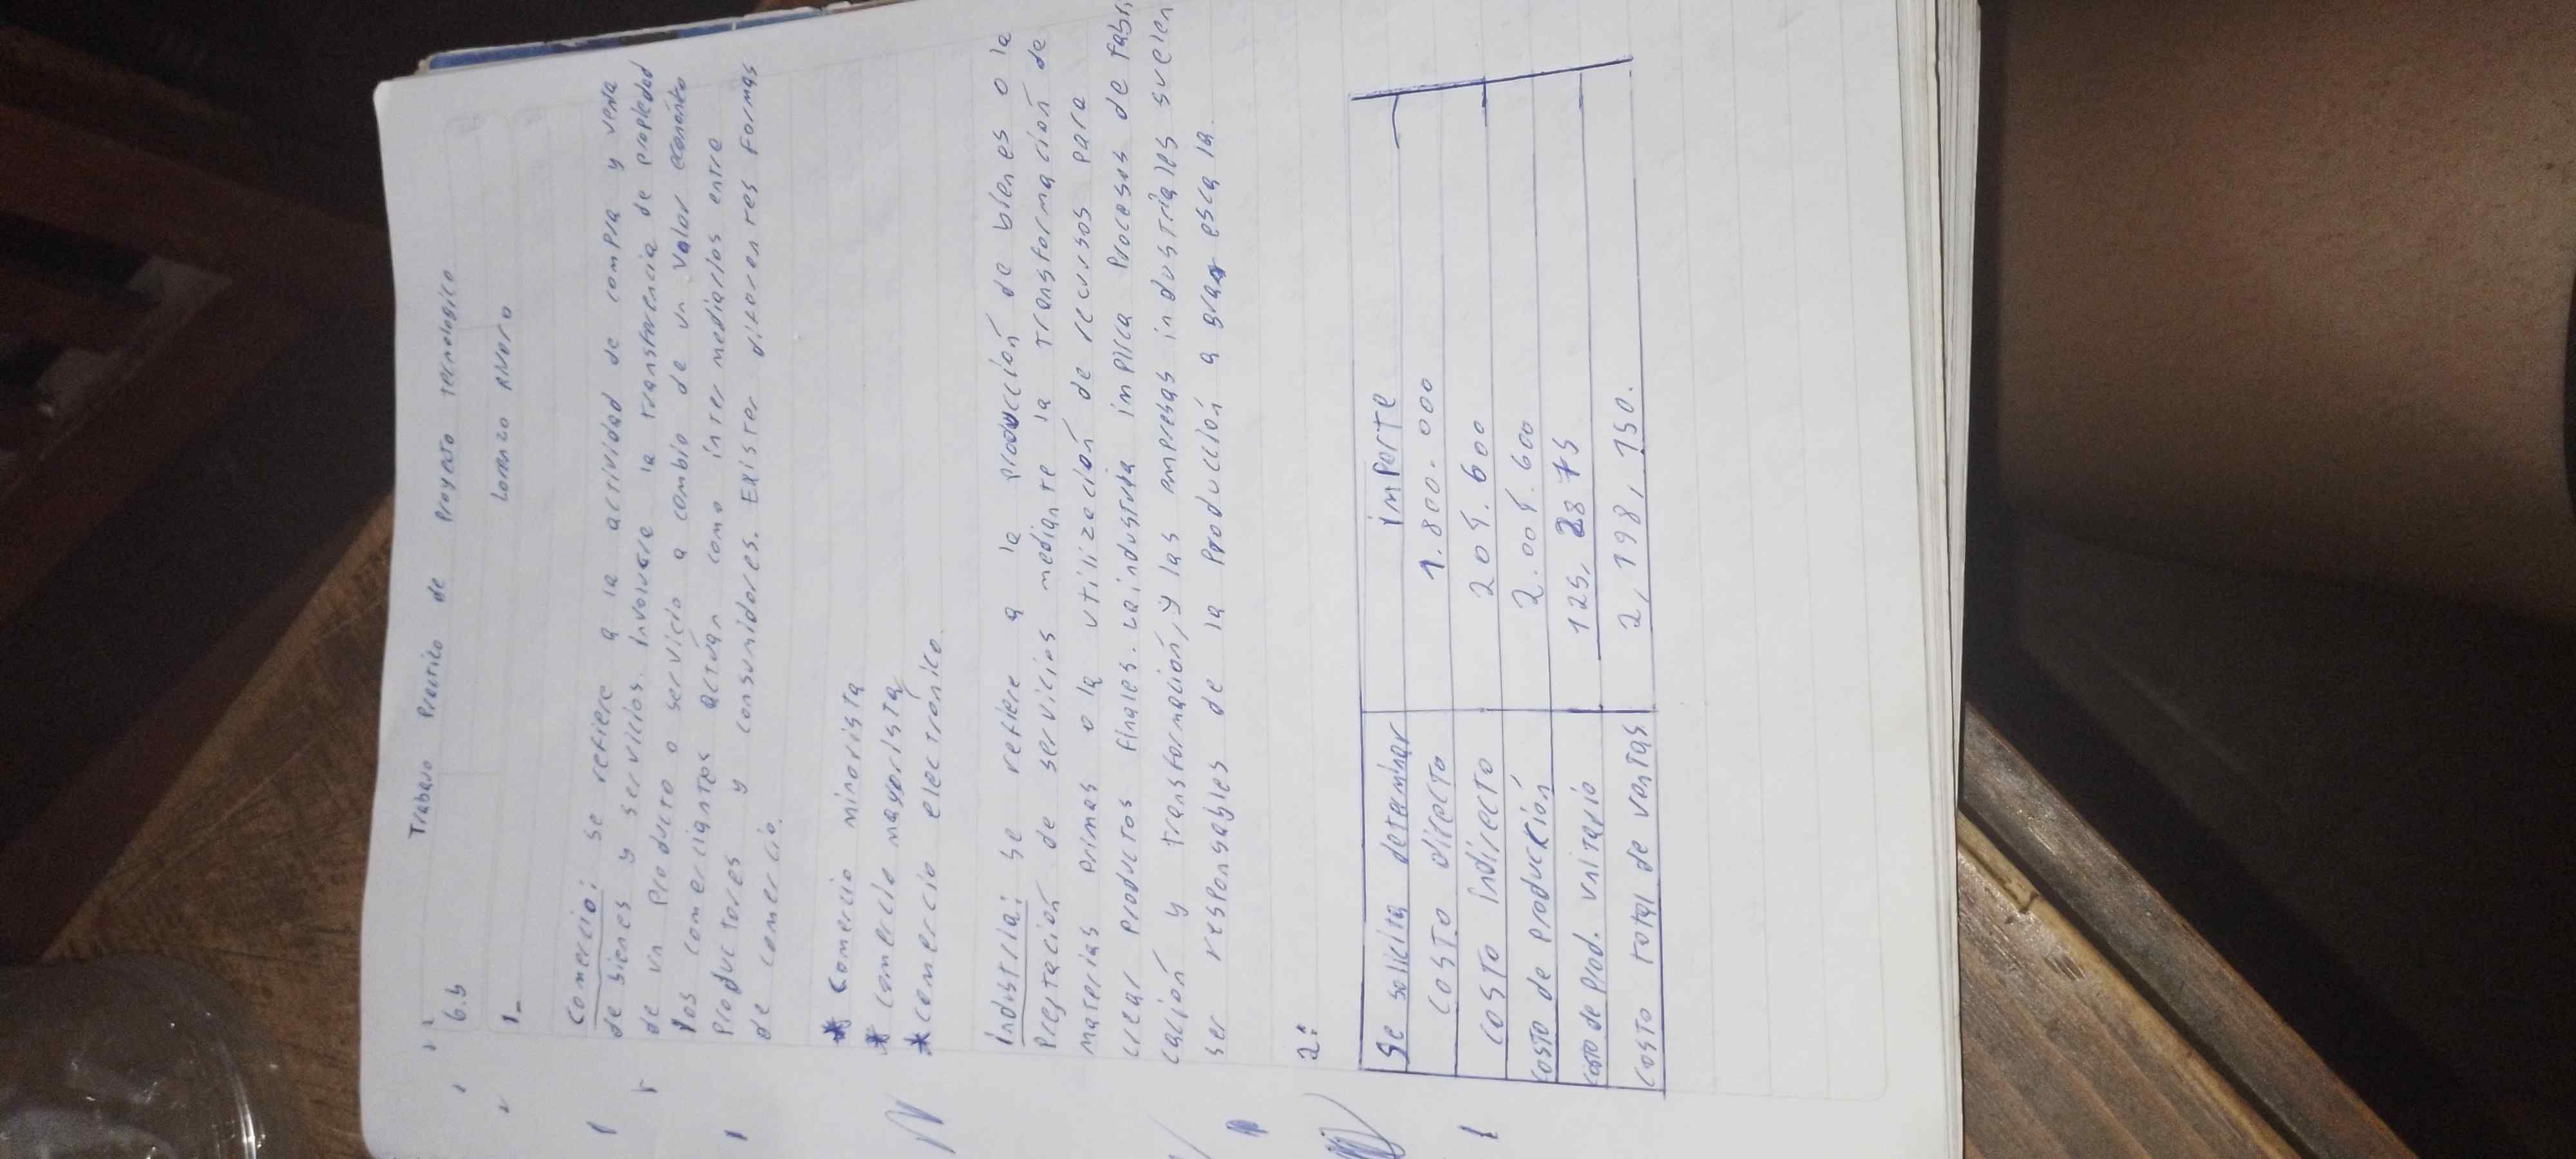 Trabajo Practico de Proyecto tecnologico
6.b
1_ Lorenzo Rivero
Comercio: se refiere a la actividad de compra y venta
de bienes y servicios. involucra la transferencia de propiedad
de un producto o servicio a cambio de un valor económico
los comerciantes actúan como intermediarios entre
productores y consumidores. Existen diferentes formas
de comercio.
* Comercio minorista
* comercio mayorista
* comercio electrónico.
industria: se refiere a la producción de bienes o la
Prestación de servicios mediante la transformación de
materias primas o la utilización de recursos para
crear productos finales. La industria implica Procesos de fabri
cación y transformación, y las empresas industriales suelen
ser responsables de la Producción a gran escala.
2:
Se solicita determinar importe
costo directo 1.800.000
costo indirecto 209.600
costo de producción 2.009.600
costo de prod. unitario
costo total de ventas 2,198,150.